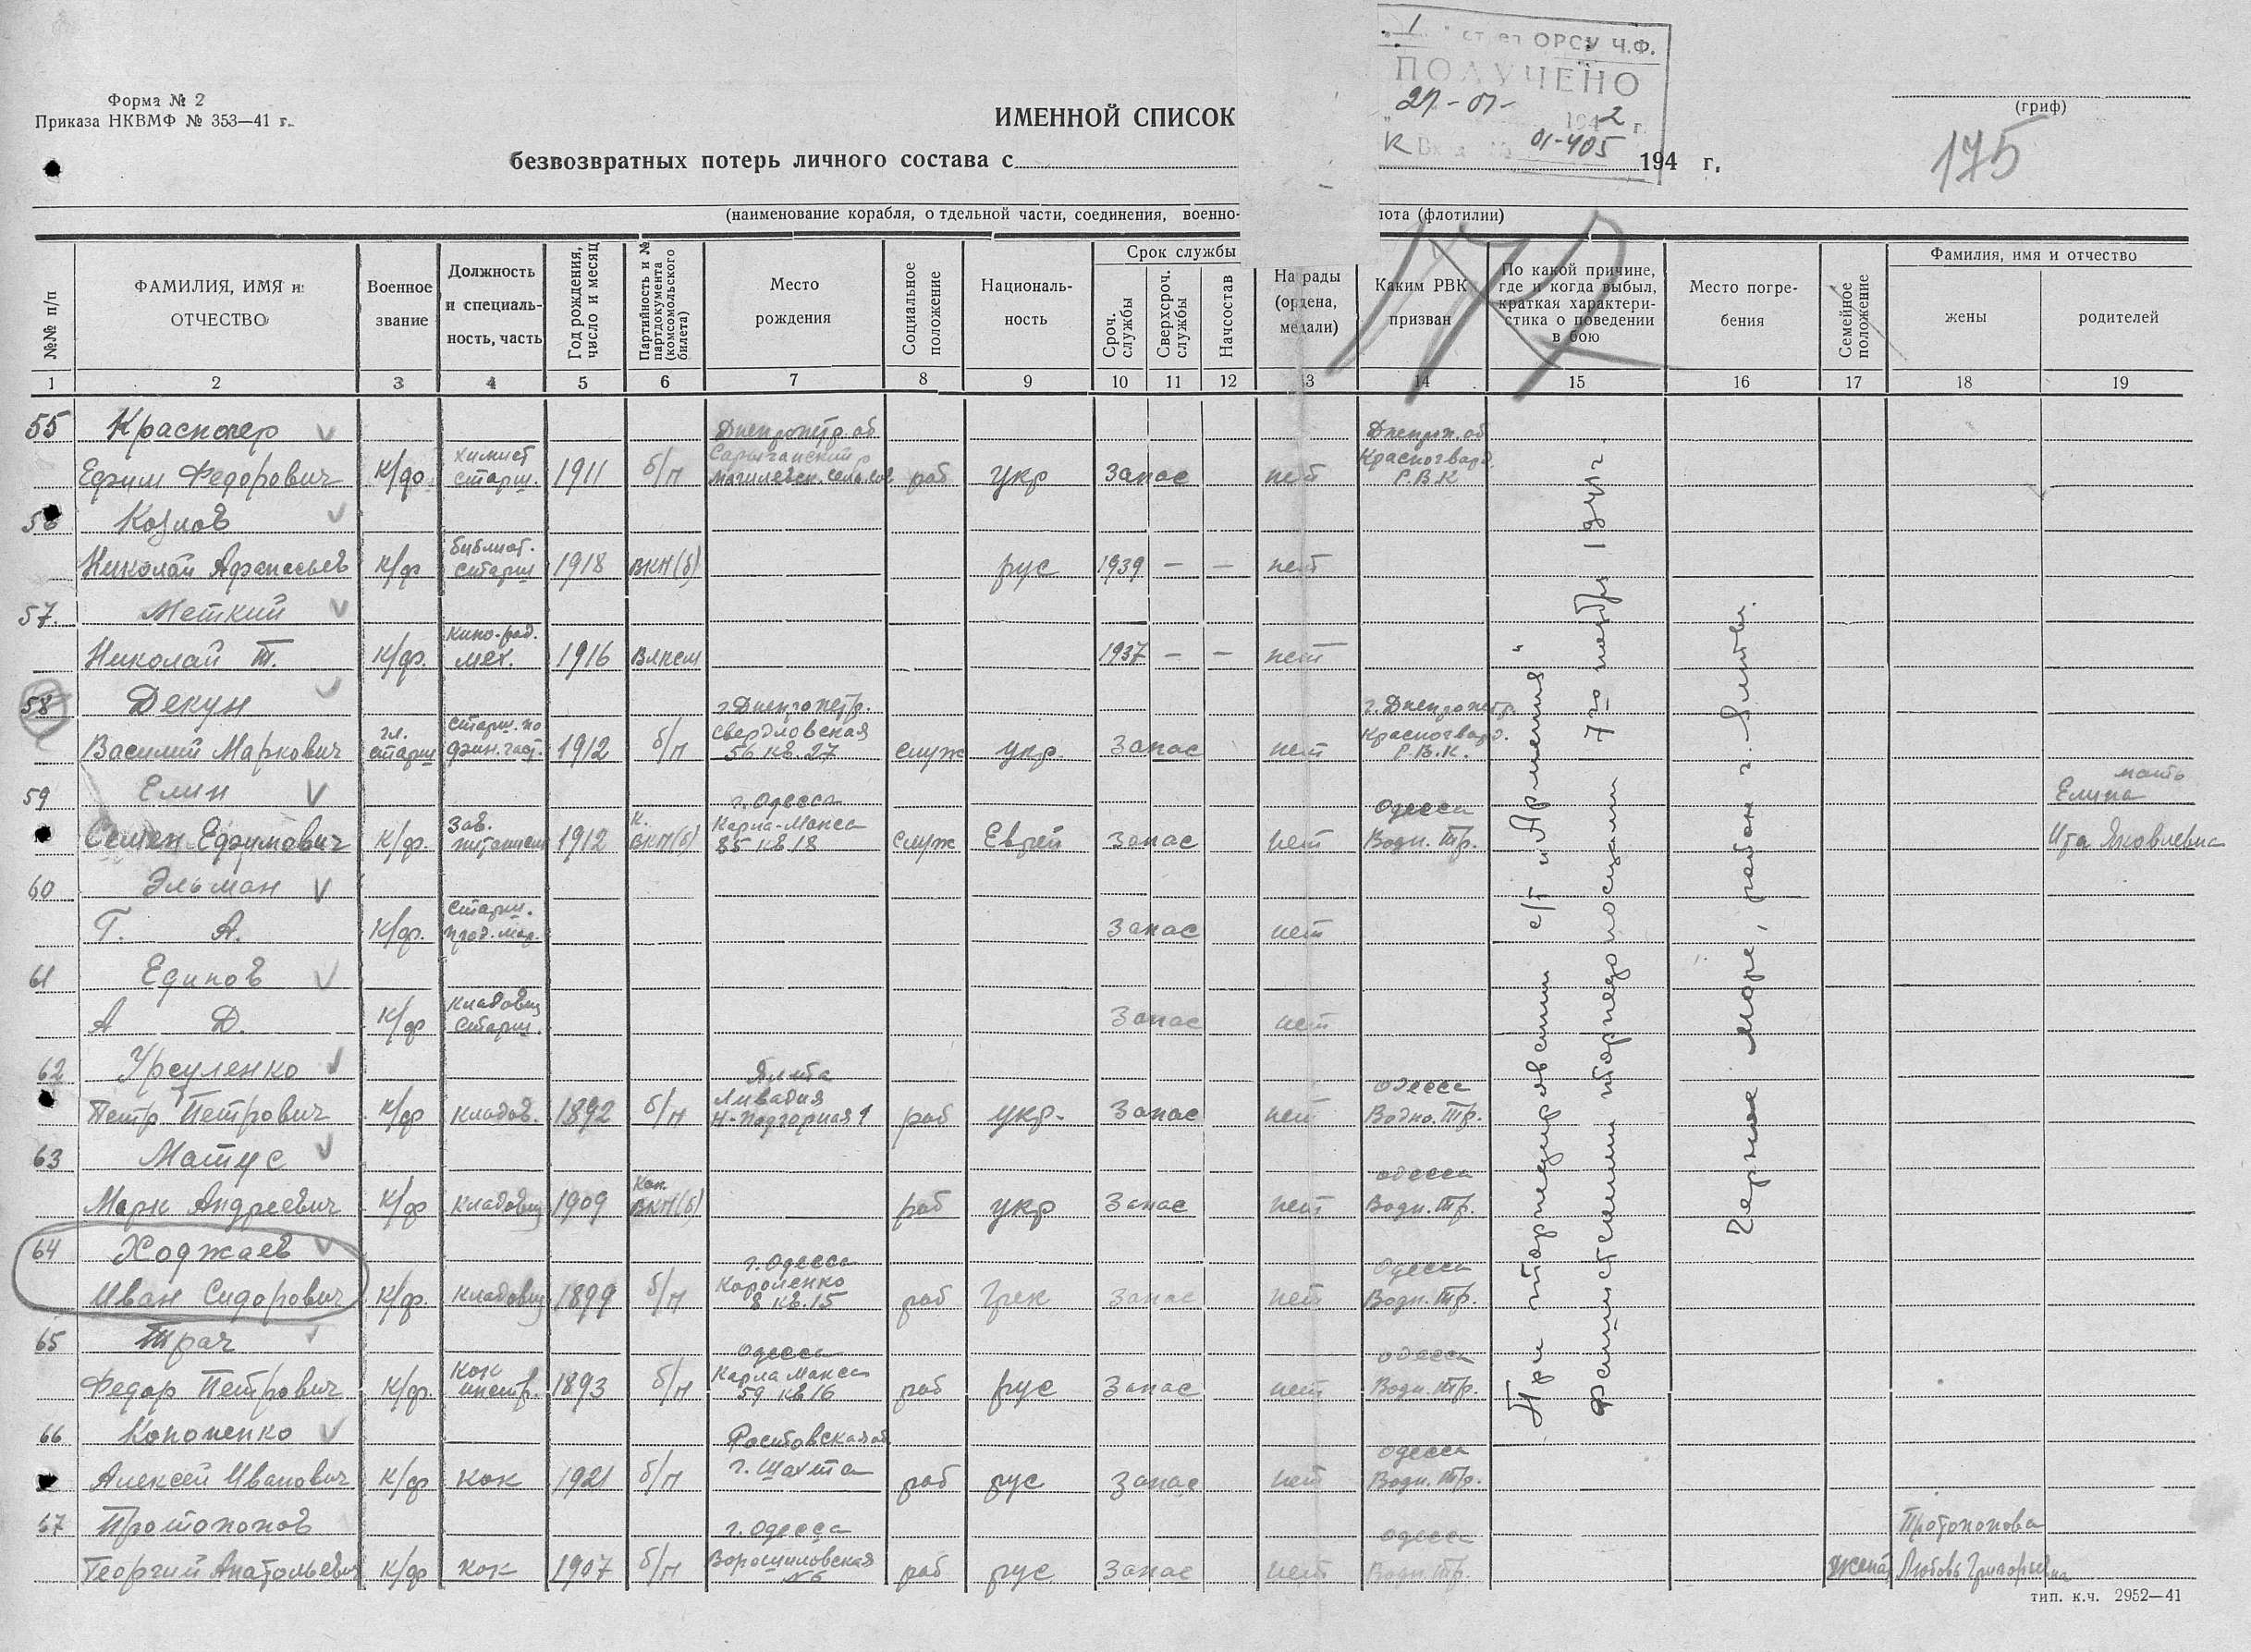 1 ОРСУ Ч.Ф.
ПОЛУЧЕНО
1942 г.
01-405
Форма № 2
Приказа НКВМФ № 353—41 г.
(гриф)
175
ИМЕННОЙ СПИСОК
безвозвратных потерь личного состава с 194 г.
(наименование корабля, отдельной части, соединения, военно- лота (флотилии)
№№ п/п
ФАМИЛИЯ, ИМЯ и ОТЧЕСТВО
Военное звание
Должность и специальность, часть
Год рождения, число и месяц
Партийность и № партдокумента (комсомольского билета)
Место рождения
Социальное положение
Националь-ность
Срок службы
Сроч. службы
Сверхсроч. службы
Начсостав
Награды (ордена, медали)
Каким РВК призван
По какой причине, где и когда выбыл, краткая характери-стика о поведении в бою
Место погре-бения
Семейное положение
Фамилия, имя и отчество
жены
родителей
1 2 3 4 5 6 7 8 9 10 11 12 13 14 15 16 17 18 19
55 Днепропетр. об Днепроп. об
Ефим Федорович к/ф химист старш. 1911 б/п раб укр Запас нет Красногвард. Р.В.К
56 Козлов
Николай Афанасьев к/ф библиот. старш 1918 ВКП(б) рус 1939 — — нет
57. Меткий
Николай Т. к/ф. кино-рад. мех. 1916 Влксм 1937 — — нет
58 Декун г. Днепропетр. г. Днепропетр.
Василий Маркович гл. старш старш. по фин. част. 1912 б/п Свердловская 56 кв. 27 служ укр. Запас нет Красногвард. Р.В.К.
59 Елин г. Одесса Одесса мать Елина
Семен Ефимович к/ф. Зав. питанием 1912 К. ВКП(б) Карла-Макса 85 кв 18 служ Еврей Запас нет Водн. Тр. Ита Яковлевна
60 Эльман
Г. А. к/ф. Старш. прод. мар. Запас нет
61 Единов
А Д. к/ф Кладовщ старш. Запас нет
62 Урсуленко Ялта Одесса
Петр Петрович к/ф кладов. 1892 б/п Ливадия Н-Подгорная 1 раб укр. Запас нет Водно. Тр.
63 Матус Одесса
Марк Андреевич к/ф кладовщ 1909 Кан. ВКП(б) раб укр Запас нет Водн. Тр.
64 Ходжаев г. Одесса Одесса
Иван Сидорович к/ф. кладовщ 1899 б/п Короленко 8 кв. 15 раб Грек Запас нет Водн. Тр.
65 Трач Одесса Одесса
Федор Петрович к/ф. кок инстр. 1893 б/п Карла Макса 59 кв 16 раб рус Запас нет Водн. Тр.
66 Кононенко Ростовская об Одесса
Алексей Иванович к/ф кок 1921 б/п г. Шахта раб рус Запас нет Водн. Тр.
67 Протопопов г. Одесса Одесса Протопопова
Георгий Анатольевич к/ф кок 1907 б/п Ворошиловская №6 раб рус Запас нет Водн. Тр. женат Любовь Григорьевна
При торпедировании с/т "Армения"
фашистскими торпедоносцами 7го ноября 1941 г.
Черное море, район г. Ялты.
тип. к.ч. 2952—41